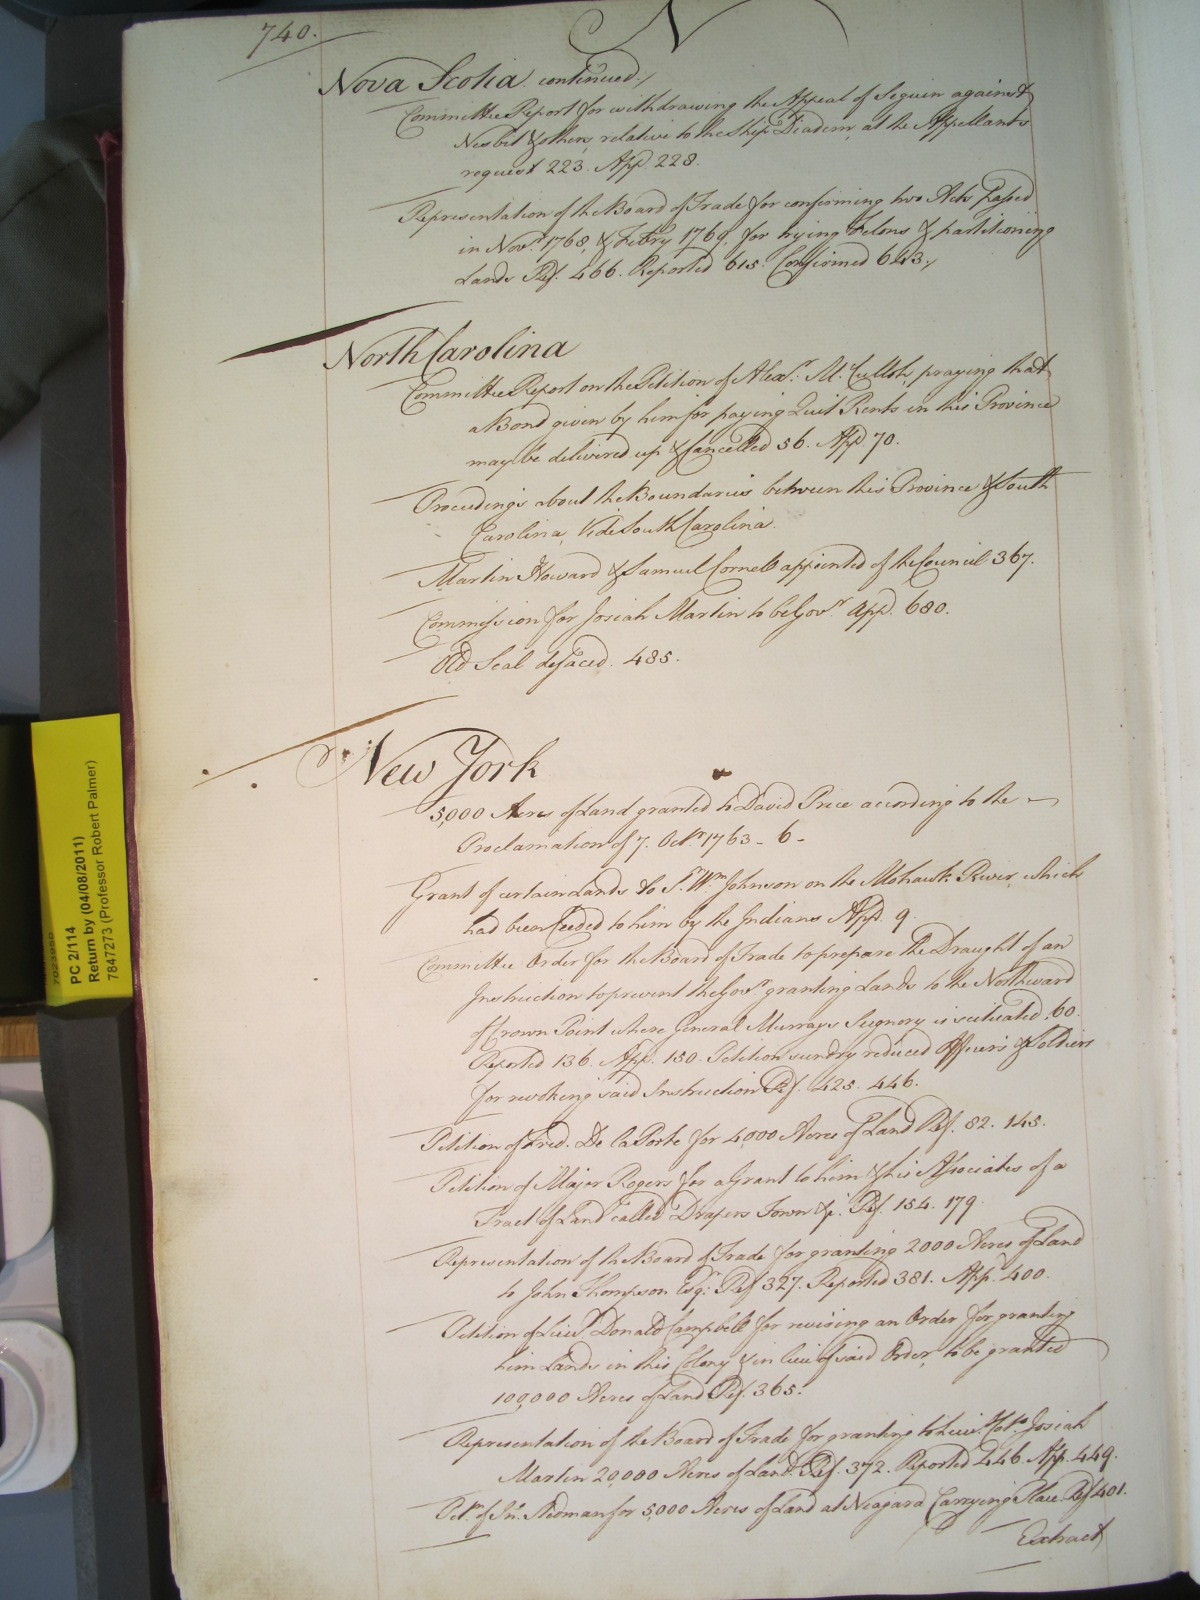 740.
N
Nova Scotia continued /
Committee Report for withdrawing the Appeal of Seguin against
Nesbit & others, relative to the Ship Diadem, at the Appellants
request 223. App. 228.
Representation of the Board of Trade for confirming two Acts passed
in Novr. 1768, & Febry 1769, for trying Felons & partitioning
Lands Ref. 466. Reported 615. Confirmed 643 /
North Carolina
Committee Report on the Petition of Alexr. McCulloh, praying that
a Bond given by him for paying Quit Rents in this Province
may be delivered up & Cancelled 56. App. 70.
Proceedings about the Boundaries between this Province & South
Carolina, Vide South Carolina.
Martin Howard & Samuel Cornell appointed of the Council 367.
Commission for Josiah Martin to be Govr. App. 680.
Old Seal defaced. 485.
New York
5,000 Acres of Land granted to David Price according to the
Proclamation of 7. Octr. 1763 - 6 -
Grant of certain Lands to Sr. Wm. Johnson on the Mohawk River, which
had been Ceeded to him by the Indians App. 9.
Committee Order for the Board of Trade to prepare the Draught of an
Instruction to prevent the Govr. granting Lands to the Northward
of Crown Point where General Murrays Seignory is scituated. 60.
Reported 136. App. 150. Petition sundry reduced Officers & Soldiers
for revoking said Instruction Ref. 425. 446.
Petition of Fred. De la Porte for 4,000 Acres of Land Ref. 82. 145.
Petition of Major Rogers for a Grant to him & his Associates of a
Tract of Land called Drapers Town &c. Ref. 154. 179
Representation of the Board of Trade for granting 2000 Acres of Land
to John Thompson Esqr. Ref. 327. Reported 381. Appd. 400.
Petition of Lieut. Donald Campbell for revising an Order for granting
him Lands in this Colony & in lieu of said Order, to be granted
100,000 Acres of Land Ref. 365.
Representation of the Board of Trade for granting to Lieut. Coll. Josiah
Martin 20,000 Acres of Land. Ref. 372. Reported 446. App. 449.
Petn. of Jn. for 5,000 Acres of Land at Niagara Carrying Place. Ref 401.
Extract
PC 2/114
Return by (04/08/2011)
7847273 (Professor Robert Palmer)